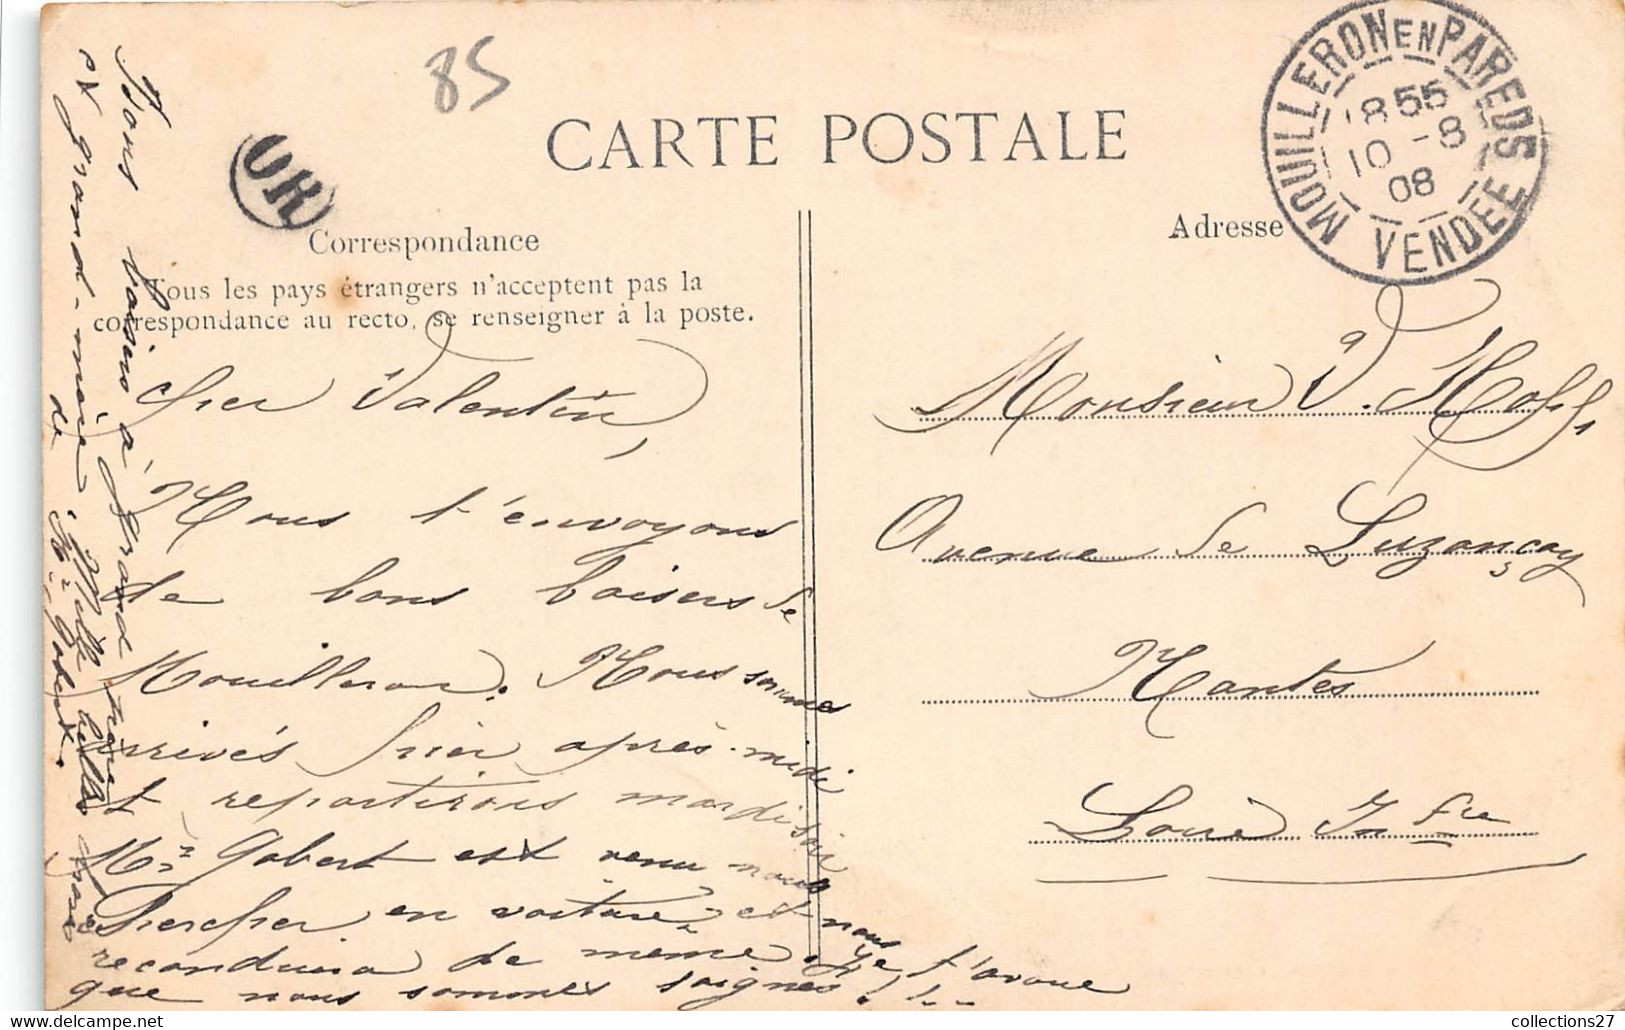 85
CARTE POSTALE
MOUILLERON EN PAREDS
18 55
10 -8
08
VENDÉE
OR
Correspondance
Adresse
Tous les pays étrangers n'acceptent pas la
correspondance au recto, se renseigner à la poste.
Cher Valentin,
Nous t'envoyons
de bons baisers de
Mouilleron. Nous sommes
arrivés hier après-midi
et repartirons mardi soir
Mr Gobert est venu nous
chercher en voiture et nous
reconduira de même. Je t'avoue
que nous sommes soignés!!..
Bons baisers à Grand
et grand-mère. Mille
de Mr Gobert.
Monsieur V.
Avenue de Luzançay
Nantes
Loire Infre
collections27